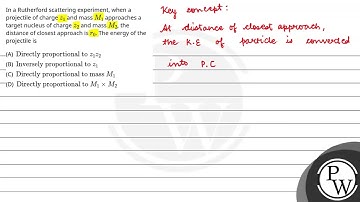 In a Rutherford scattering experiment, when a
projectile of charge z₁ and mass M₁ approaches a
target nucleus of charge z₂ and mass M₂, the
distance of closest approach is r₀. The energy of the
projectile is
(A) Directly proportional to z₁z₂
(B) Inversely proportional to z₁
(C) Directly proportional to mass M₁
(D) Directly proportional to M₁ × M₂
Key concept:
At distance of closest approach,
the K.E of particle is converted
into P.C
PW